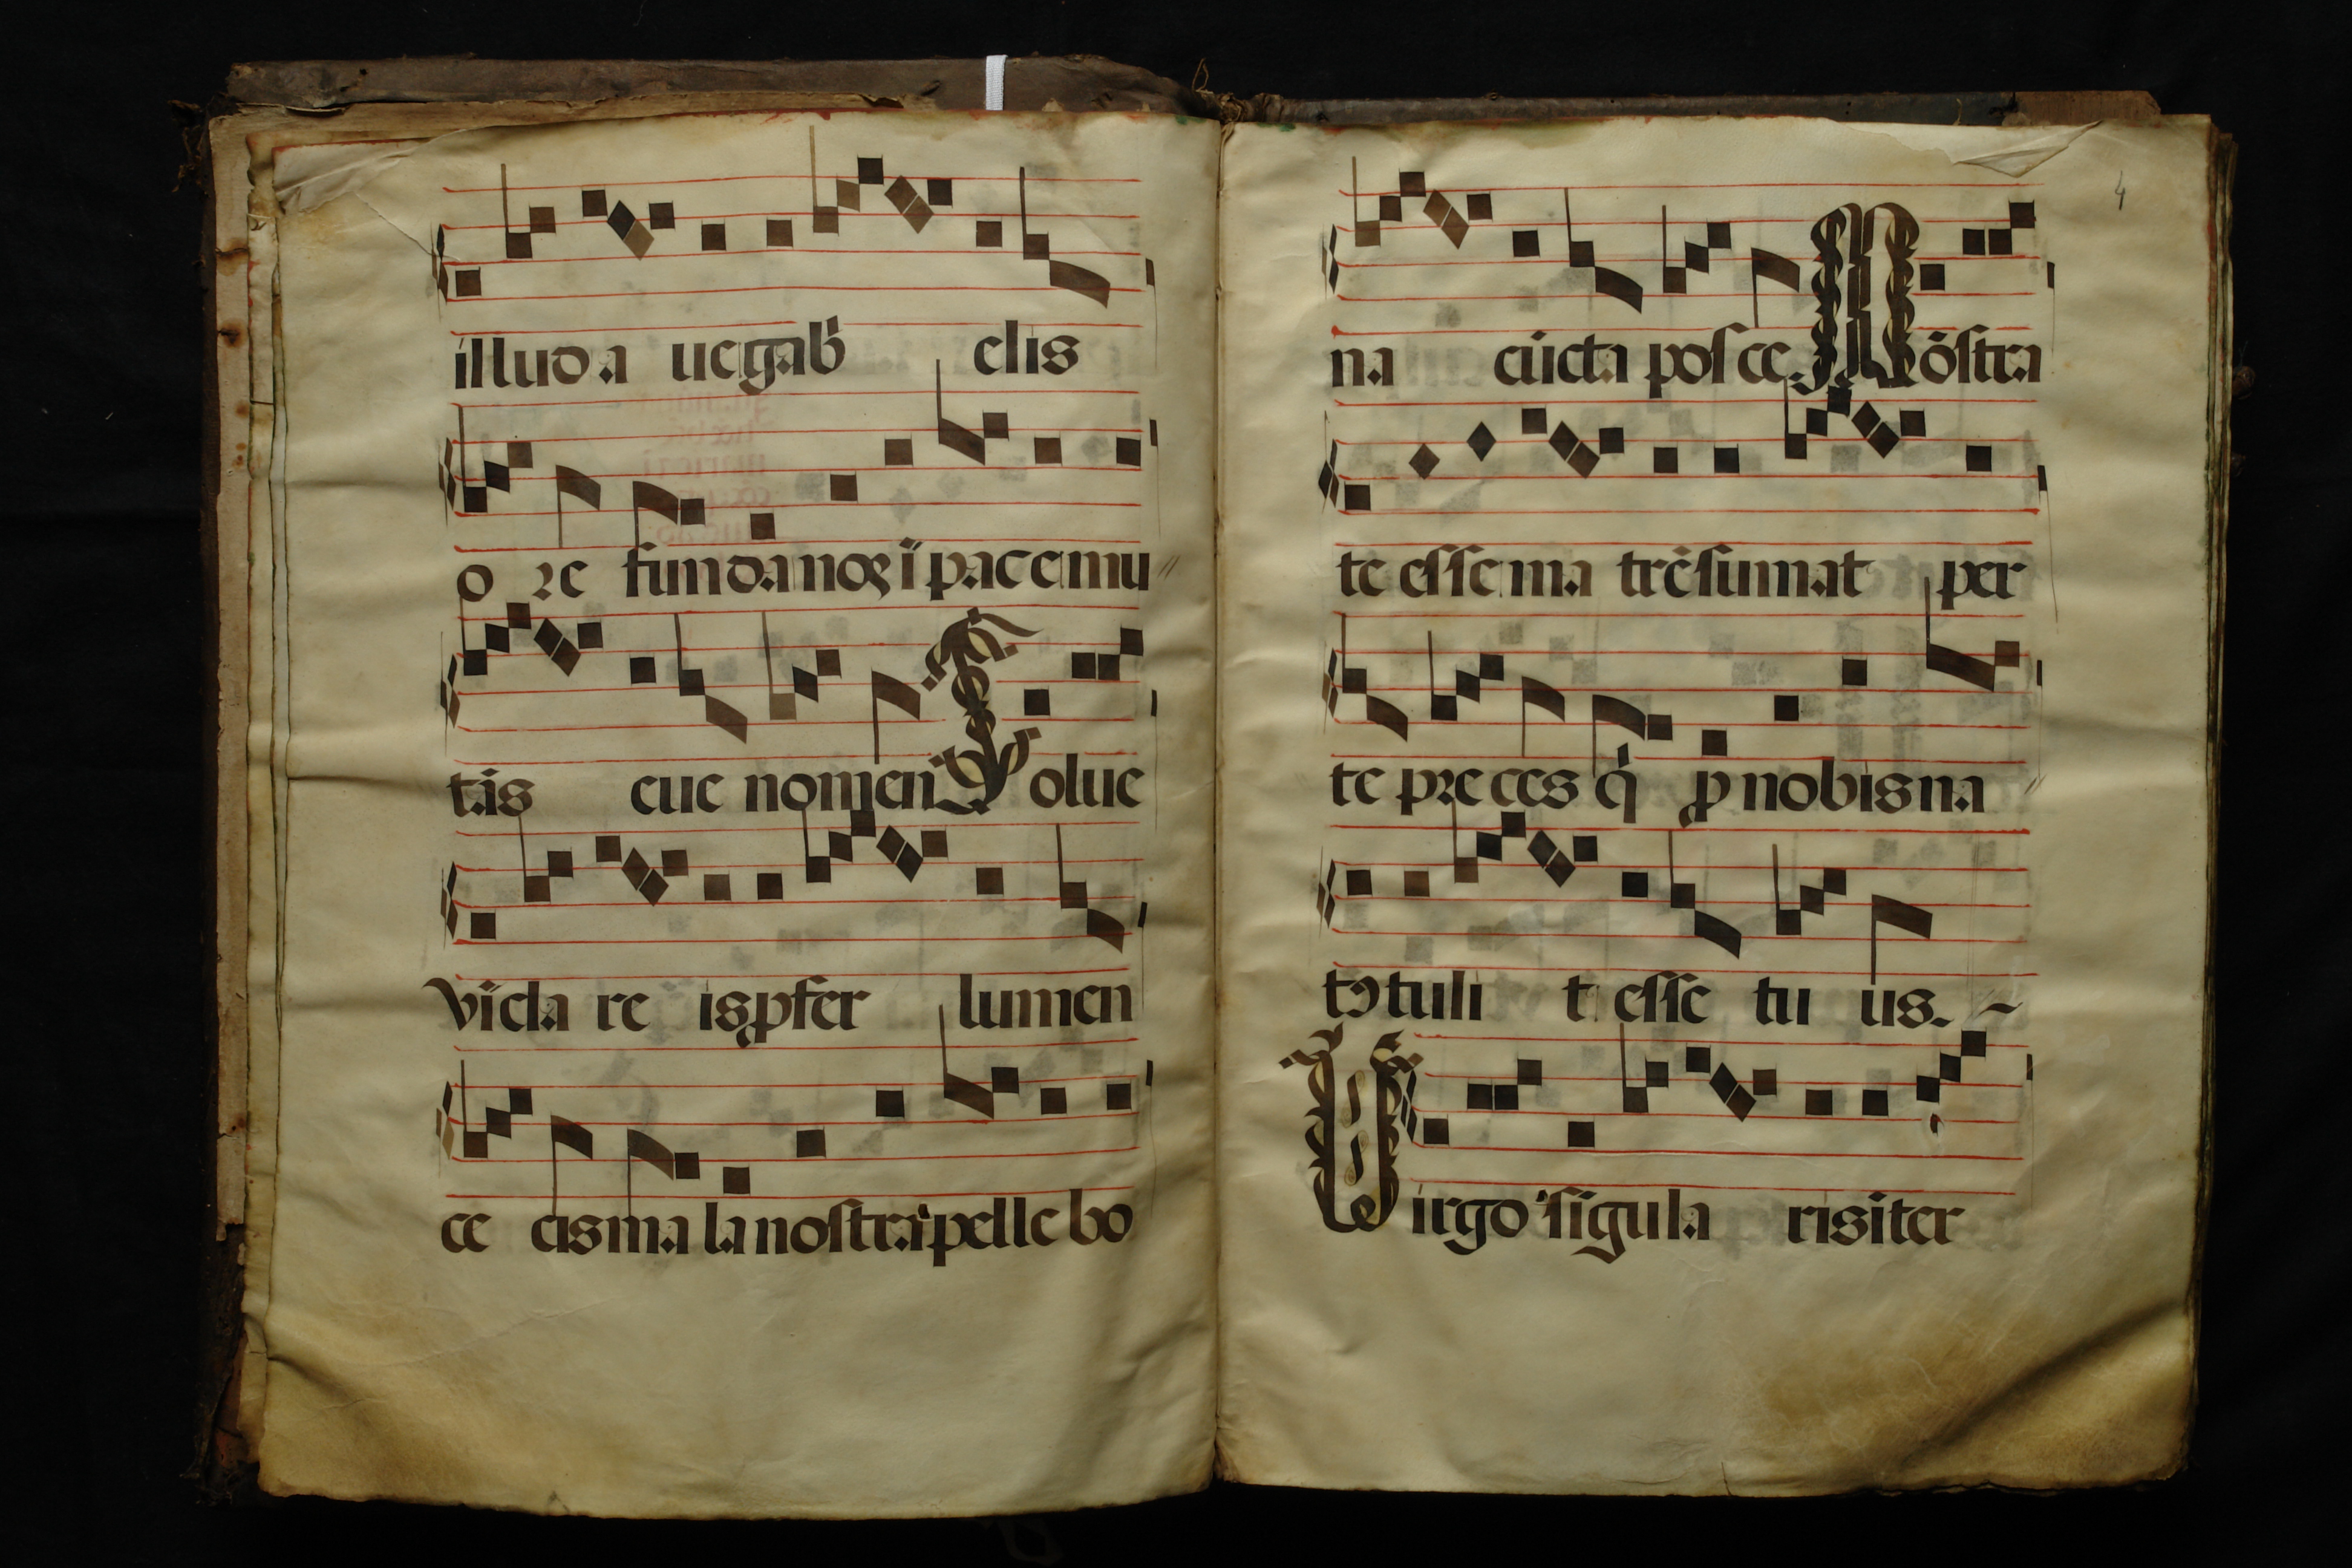 illud a ue gab̄ elis
o ꝛe funda noꝫ ī pace mu
tās eue nomen Solue
vīcla re is ꝓfer lumen
ce cis ma la nostra pelle bo
4
na cūcta posce. Mōstra
te esse ma trē sumat per
te pꝛe ces q̄ ꝓ nobis na
tꝰ tuli t esse tu us.
Virgo sīgula risiter